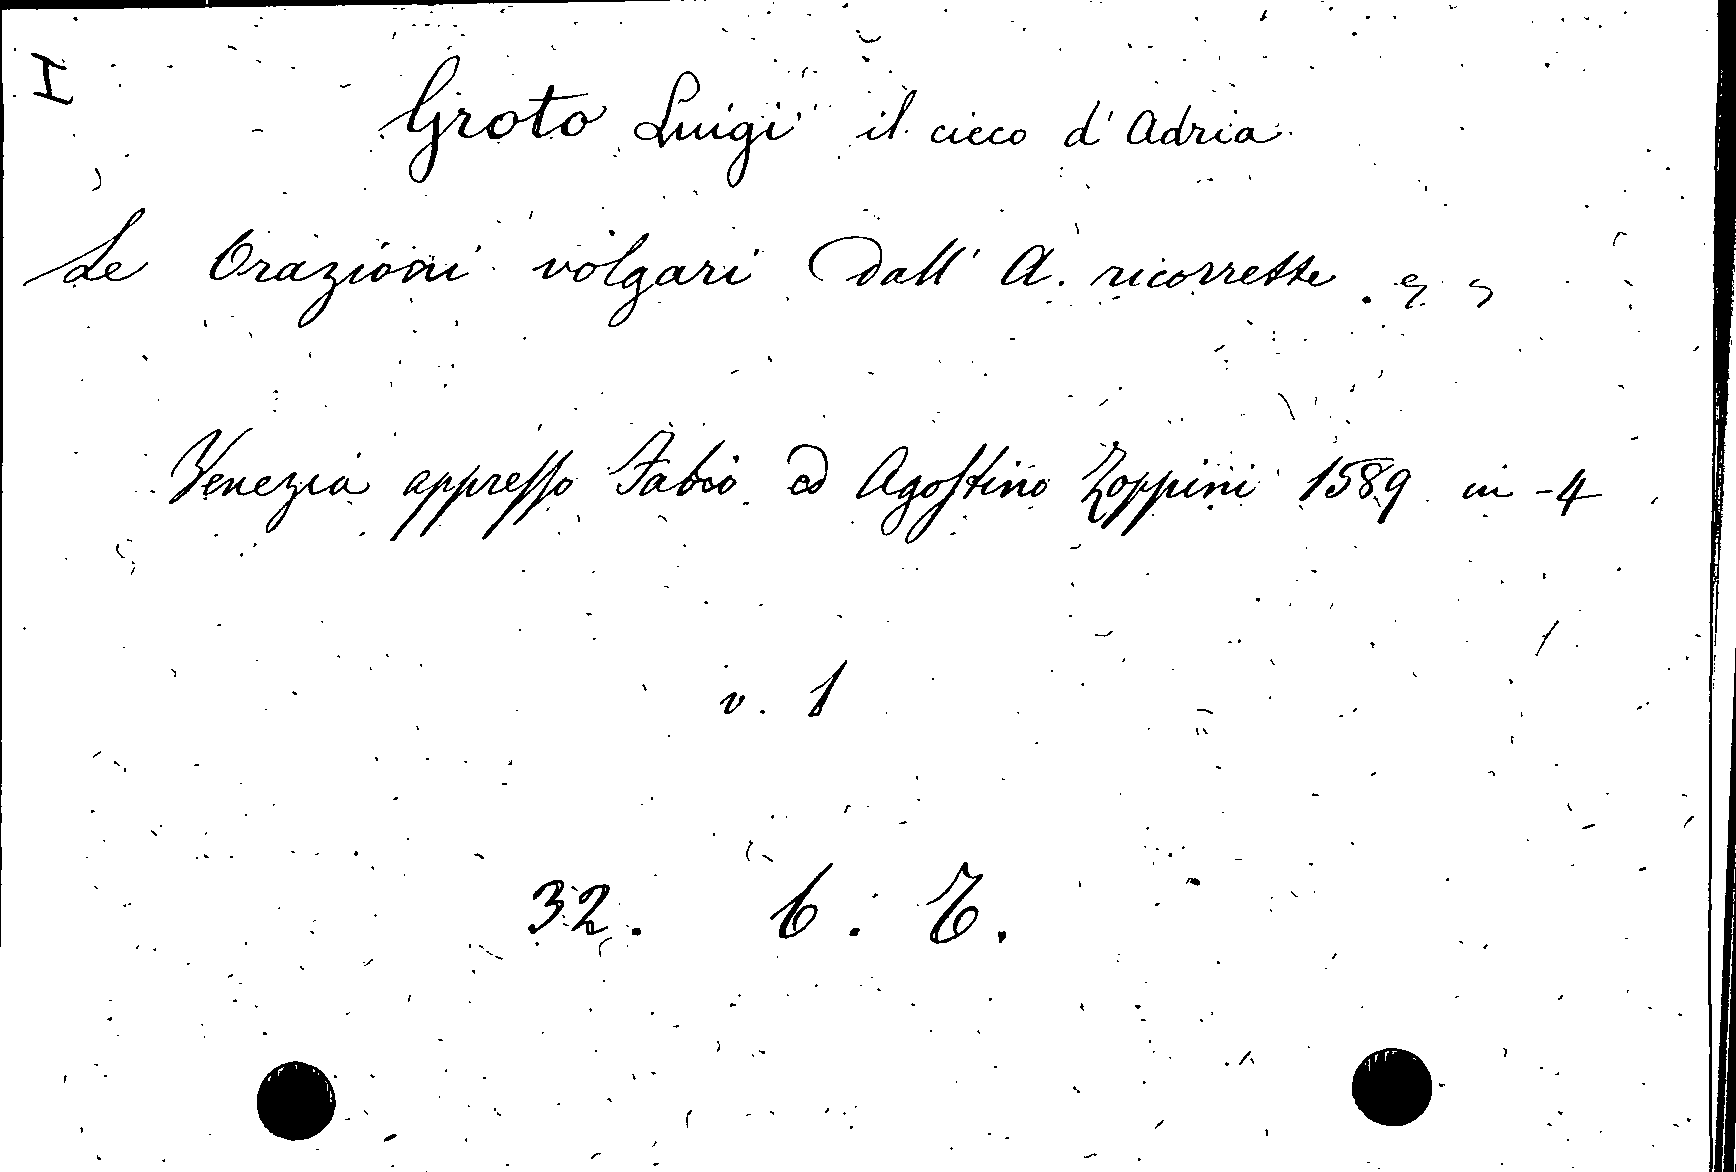 I
Groto Luigi il cieco d'Adria
Le Orazioni volgari dall' A. ricorrette.
Venezia appresso Fabio ed Agostino Zoppini 1589 in-4
v. 1
32. 6.